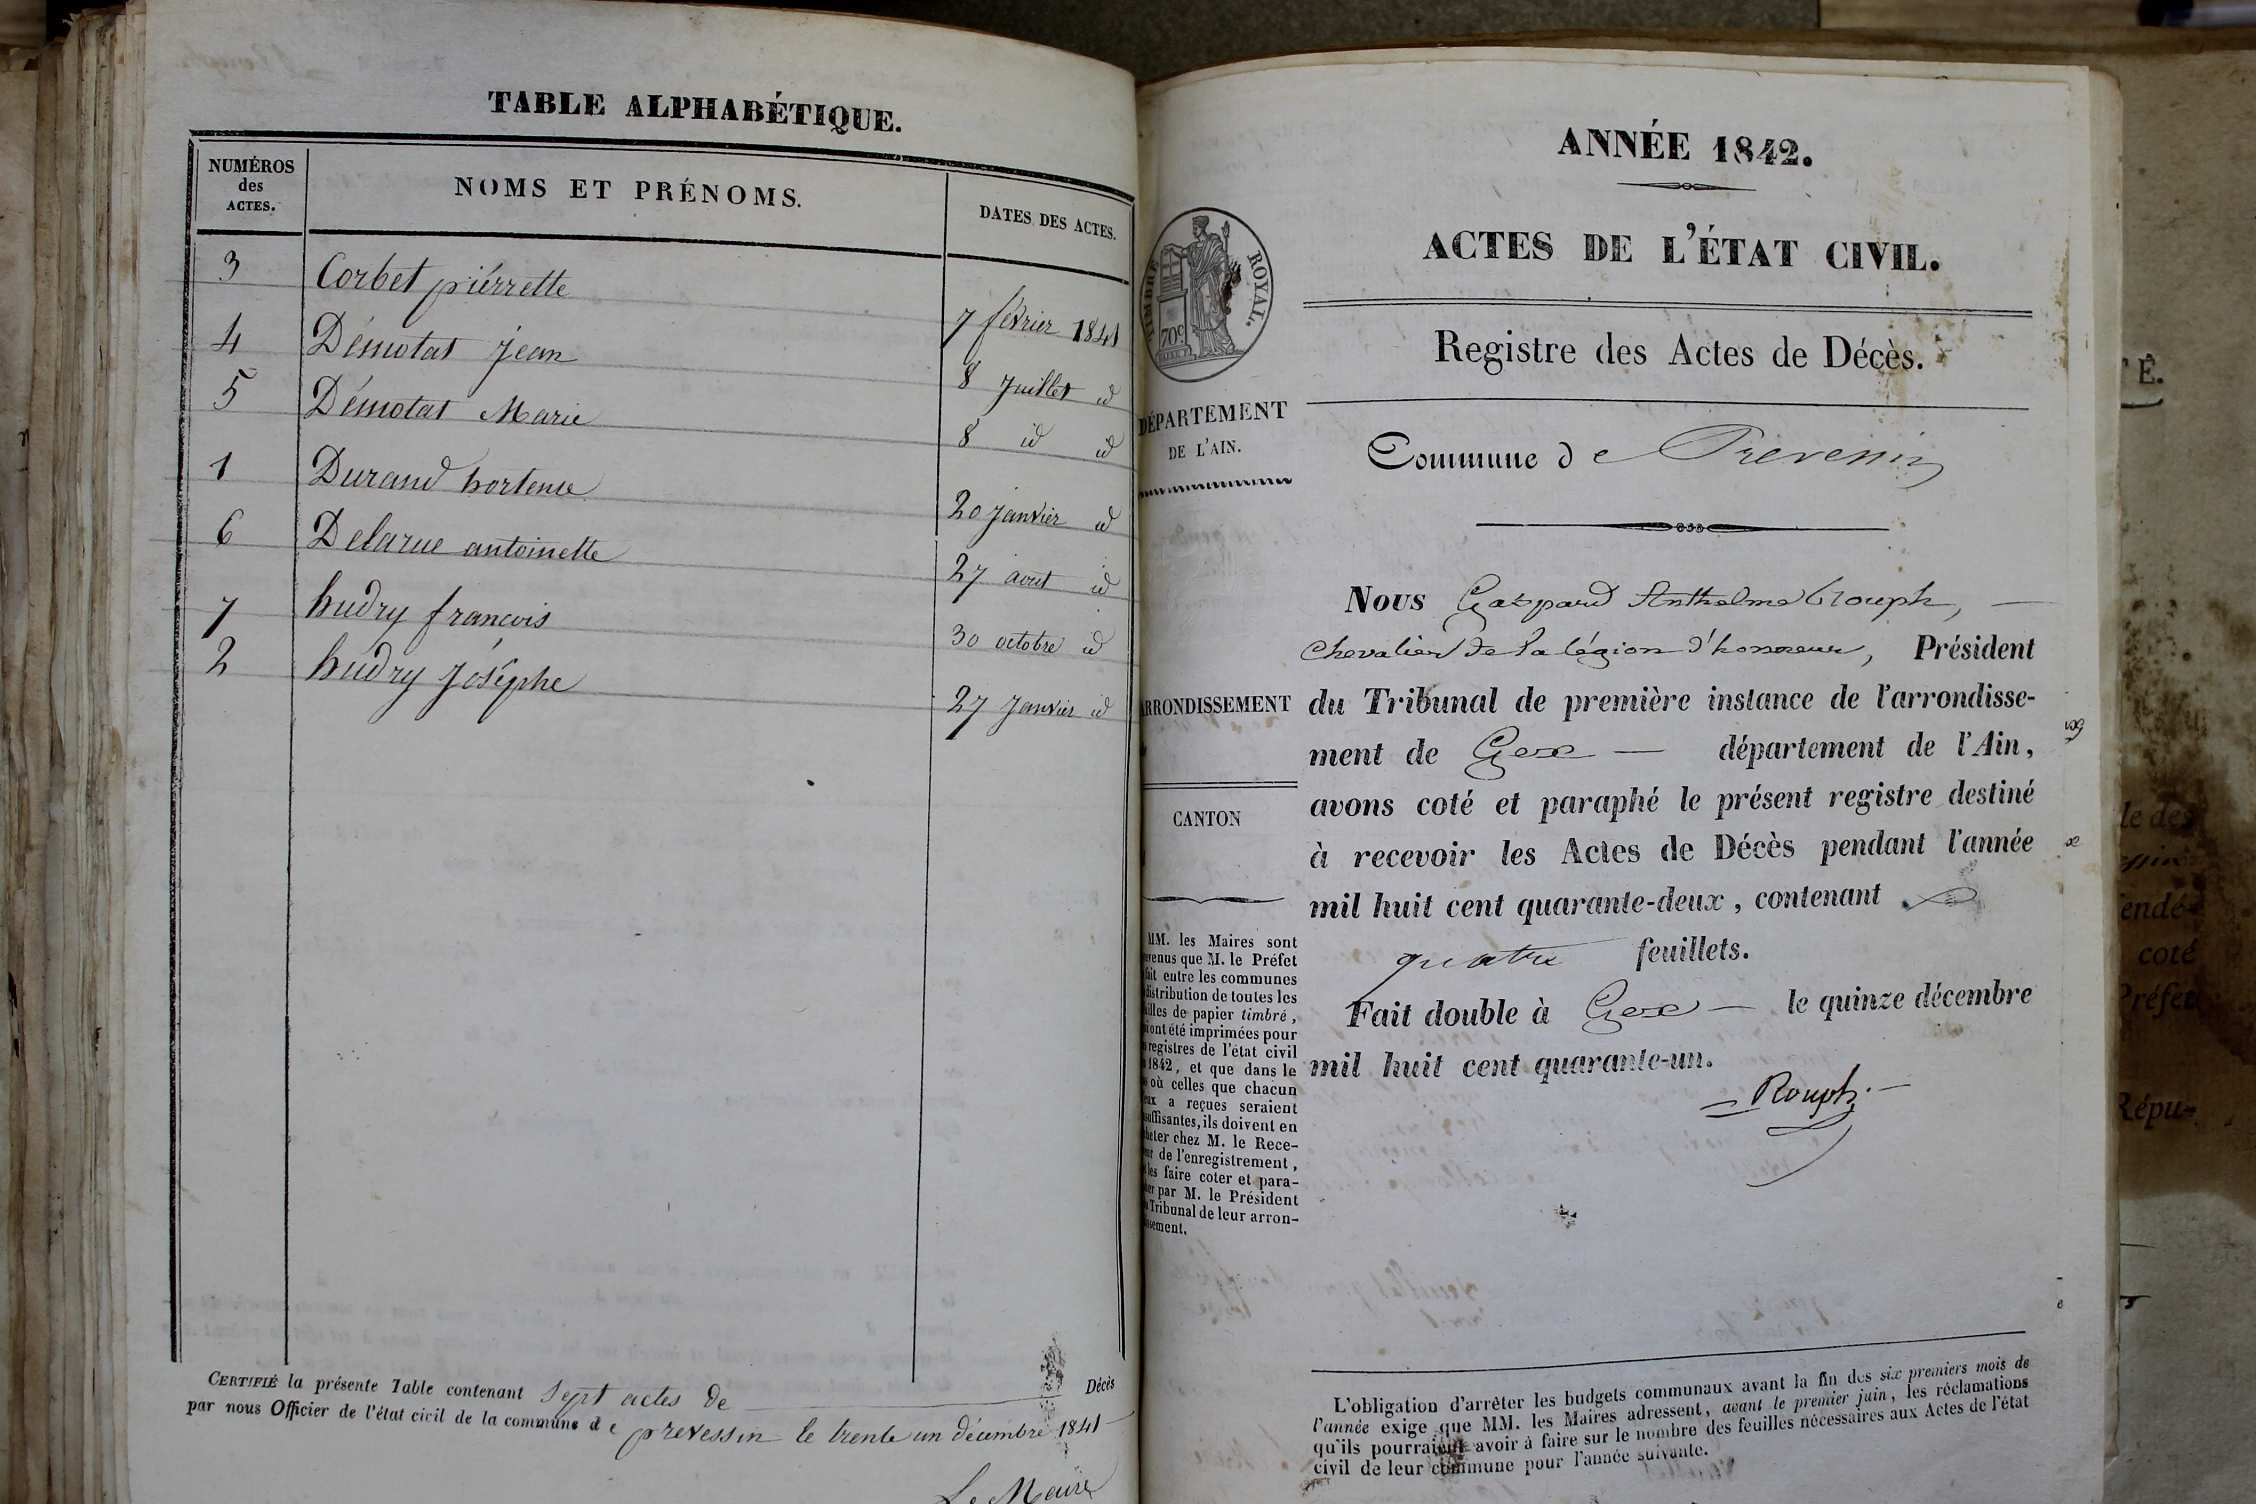 TABLE ALPHABÉTIQUE.
NUMÉROS
des
ACTES.
NOMS ET PRÉNOMS.
DATES DES ACTES.
3 Corbet piérrette 7 février 1841
4 Démotas jean 8 juillet id
5 Démotas Marie 8 id id
1 Durand hortense 20 janvier id
6 Delarue antoinette 27 aout id
7 hudry francois 30 octobre id
2 hudry joséphe 27 janvier id
CERTIFIÉ la présente Table contenant sept actes de Décès
par nous Officier de l'état civil de la commune de prevessin le trente un décembre 1841
Le Maire
ANNÉE 1842.
ACTES DE L'ÉTAT CIVIL.
TIMBRE ROYAL.
70c
Registre des Actes de Décès.
DÉPARTEMENT
DE L'AIN.
Commune de Prevessin
Nous Gaspard Anthelme Rouph,
chevalier de la légion d'honneur, Président
du Tribunal de première instance de l'arrondisse-
ment de Gex département de l'Ain,
avons coté et paraphé le présent registre destiné
à recevoir les Actes de Décès pendant l'année
mil huit cent quarante-deux, contenant
quatre feuillets.
Fait double à Gex le quinze décembre
mil huit cent quarante-un.
Rouph
ARRONDISSEMENT
CANTON
MM. les Maires sont
que M. le Préfet
entre les communes
distribution de toutes les
de papier timbré,
ont été imprimées pour
registres de l'état civil
1842, et que dans le
où celles que chacun
a reçues seraient
insuffisantes, ils doivent en
chez M. le Rece-
de l'enregistrement,
les faire coter et para-
par M. le Président
Tribunal de leur arron-
L'obligation d'arrêter les budgets communaux avant la fin des six premiers mois de
l'année exige que MM. les Maires adressent, avant le premier juin, les réclamations
qu'ils pourraient avoir à faire sur le nombre des feuilles nécessaires aux Actes de l'état
civil de leur commune pour l'année suivante.
coté
Répu-